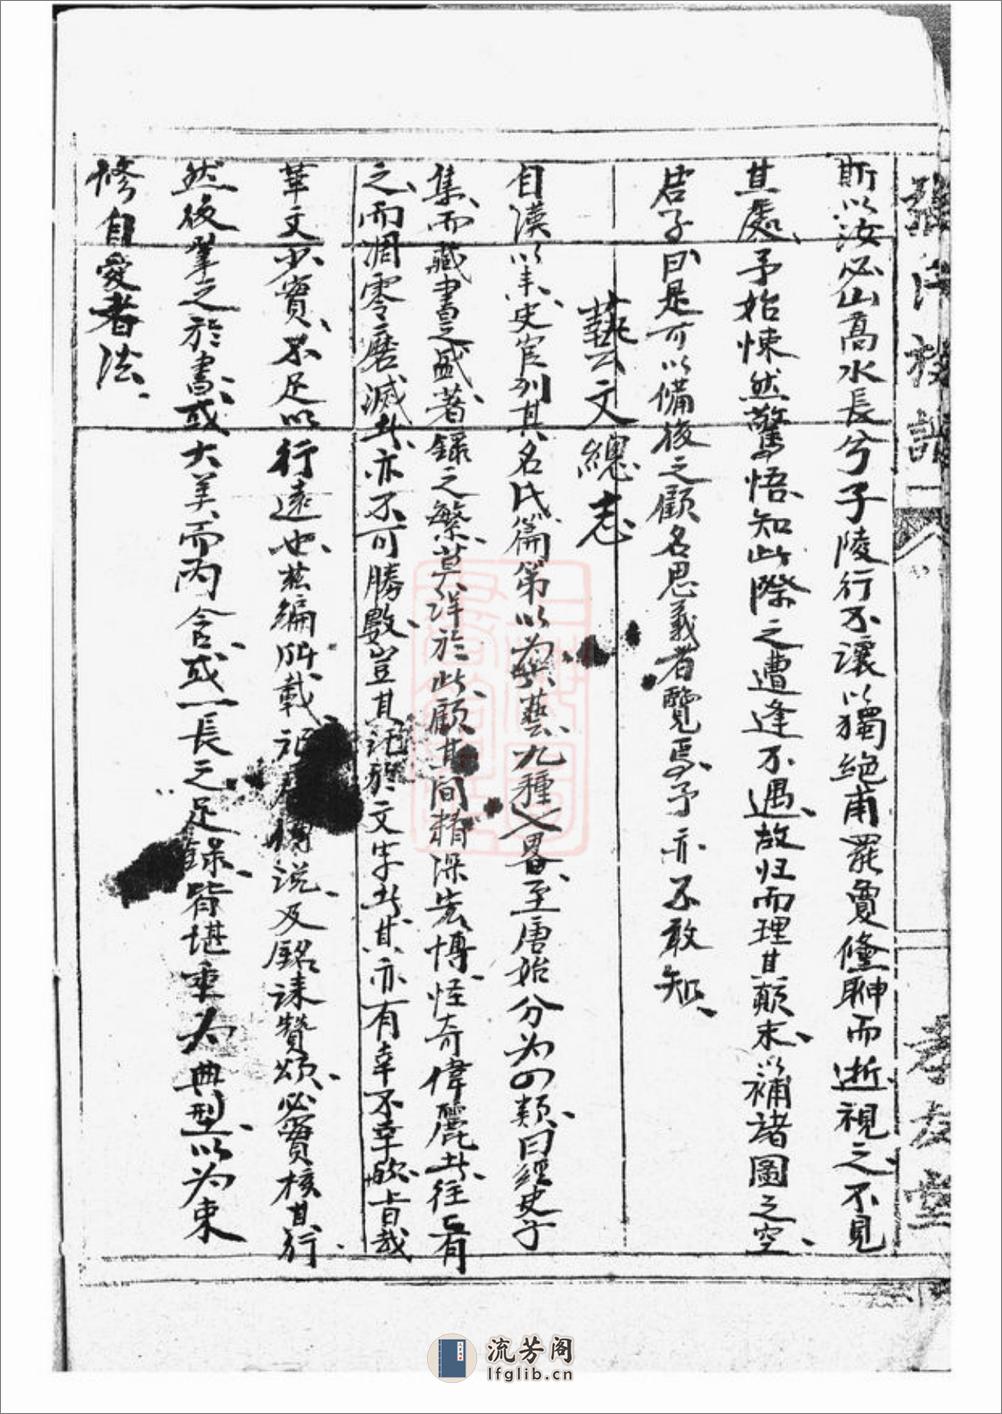 斯以汝必山高水長兮子陵行不讓以獨絕甫罷賣儵聃而逝視之不見
其處予始悚然驚悟知此際之遭逢不遇故归而理其顛末以補諸圖之空
君子曰是可以備後之顧名思義者覽焉予亦不敢知
藝文總志
自漢以來史官列其名氏篇第以為藝九種七畧至唐始分为四類曰經史子
集而藏書之盛著錄之繁莫詳於此顧其間精深宏博怪奇偉麗者往々有
之而凋零磨滅者亦不可勝數豈其託於文字者其亦有幸不幸歟旨哉
華文少實不足以行遠也玆編所載記傳說及銘誄贊頌必實核其行
然後筆之於書或大美而内含或一長之足錄皆堪垂为典型以为束
修自愛者法
孝友堂
流芳阁
lfglib.cn